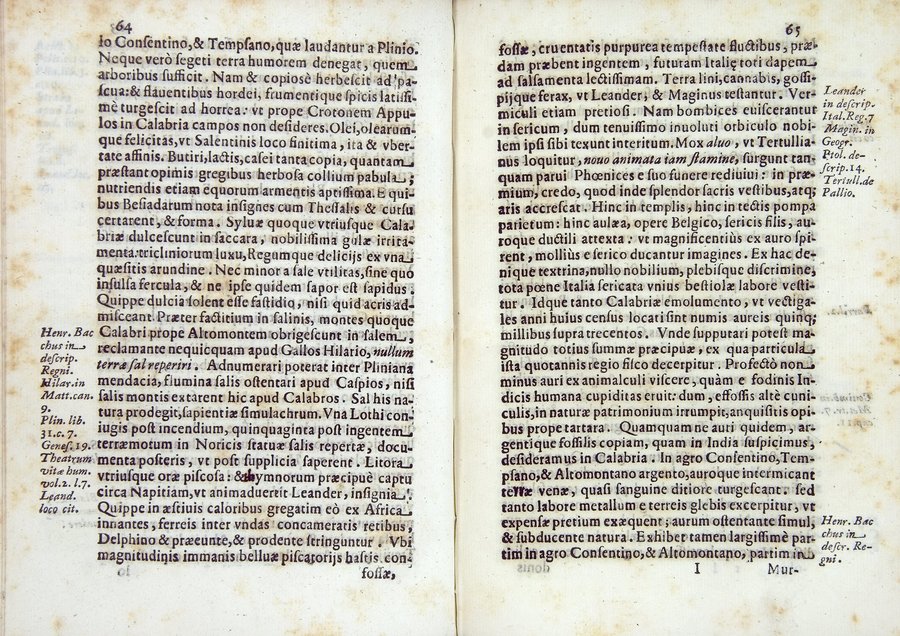 64
lo Consentino, & Tempsano, quæ laudantur a Plinio.
Neque verò segeti terra humorem denegat, quem
arboribus sufficit. Nam & copiosè herbescit ad pa-
scua: & flauentibus hordei, frumentique spicis latissi-
mè turgescit ad horrea: vt prope Crotonem Appu-
los in Calabria campos non desideres. Olei, olearum-
que felicitas, vt Salentinis loco finitima, ita & vber-
tate affinis. Butiri, lactis, casei tanta copia, quantam
præstant opimis gregibus herbosa collium pabula;
nutriendis etiam equorum armentis aptissima. E qui-
bus Besiadarum nota insignes cum Thessalis & cursu
certarent, & forma. Syluæ quoque vtriusque Cala-
briæ dulcescunt in saccara, nobilissima gulæ irrita-
menta: tricliniorum luxu, Regumque delicijs ex vna
quæsitis arundine. Nec minor a sale vtilitas, sine quo
insulsa fercula, & ne ipse quidem sapor est sapidus.
Quippe dulcia solent esse fastidio, nisi quid acris ad-
misceant. Præter factitium in salinis, montes quoque
Calabri prope Altomontem obrigescunt in salem,
reclamante nequicquam apud Gallos Hilario, nullum
terræ sal reperiri. Adnumerari poterat inter Pliniana
mendacia, flumina salis ostentari apud Caspios, nisi
salis montis extarent hic apud Calabros. Sal his na-
tura prodegit, sapientiæ simulachrum. Vna Lothi con-
iugis post incendium, quinquaginta post ingentem
terræmotum in Noricis statuæ salis repertæ, docu-
menta posteris, vt post supplicia saperent. Litora
vtriusque oræ piscosa: & thymnorum præcipuè captu
circa Napitiam, vt animaduertit Leander, insignia.
Quippe in æstiuis caloribus gregatim eò ex Africa
innantes, ferreis inter vndas concameratis retibus,
Delphino & præeunte, & prodente stringuntur. Vbi
magnitudinis immanis belluæ piscatorijs hastis con-
fossæ,
Henr. Bac
chus in
descrip.
Regni.
Hilar. in
Matt. can.
9.
Plin. lib.
31. c. 7.
Genes. 19.
Theatrum
vitæ hum.
vol. 2. l. 7.
Leand.
loco cit.
65
fossæ, cruentatis purpurea tempestate fluctibus, præ-
dam præbent ingentem, futuram Italię tori dapem
ad salsamenta lectissimam. Terra lini, cannabis, gossi-
pijque ferax, vt Leander, & Maginus testantur. Ver-
miculi etiam pretiosi. Nam bombices euiscerantur
in sericum, dum tenuissimo inuoluti orbiculo nobi-
lem ipsi sibi texunt interitum. Mox aluo, vt Tertullia-
nus loquitur, nouo animata iam stamine, surgunt tan-
quam parui Phœnices e suo funere rediuiui: in præ-
mium, credo, quod inde splendor sacris vestibus, atq;
aris accrescat. Hinc in templis, hinc in tectis pompa
parietum: hinc aulæa, opere Belgico, sericis filis, au-
roque ductili attexta: vt magnificentiùs ex auro spi-
rent, molliùs e serico ducantur imagines. Ex hac de-
nique textrina, nullo nobilium, plebisque discrimine,
tota pœne Italia sericata vnius bestiolæ labore vesti-
tur. Idque tanto Calabriæ emolumento, vt vectiga-
les anni huius census locati sint numis aureis quinq;
millibus supra trecentos. Vnde supputari potest ma-
gnitudo totius summæ præcipuæ, ex qua particula
ista quotannis regio fisco decerpitur. Profectò non
minus auri ex animalculi viscere, quàm e fodinis In-
dicis humana cupiditas eruit: dum, effossis altè cuni-
culis, in naturæ patrimonium irrumpit, anquisitis opi-
bus prope tartara. Quamquam ne auri quidem, ar-
gentique fossilis copiam, quam in India suspicimus,
desideramus in Calabria. In agro Consentino, Tem-
psano, & Altomontano argento, auroque intermicant
terræ venæ, quasi sanguine ditiore turgescant: sed
tanto labore metallum e terreis glebis excerpitur, vt
expensæ pretium exæquent; aurum ostentante simul,
& subducente natura. Exhibet tamen largissimè par-
tim in agro Consentino, & Altomontano, partim in
I
Mur-
Leander
in descrip.
Ital. Reg. 7
Magin. in
Geogr.
Ptol. de-
scrip. 14.
Tertull. de
Pallio.
Henr. Bac
chus in
descr. Re-
gni.